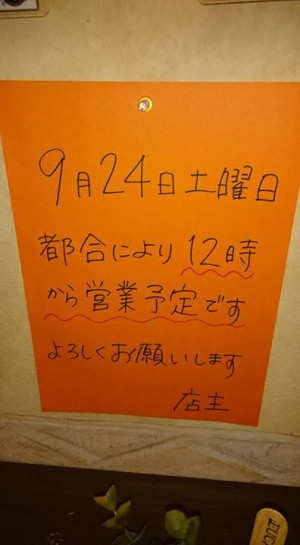 9月24日土曜日
都合により12時
から営業予定です
よろしくお願いします
店主